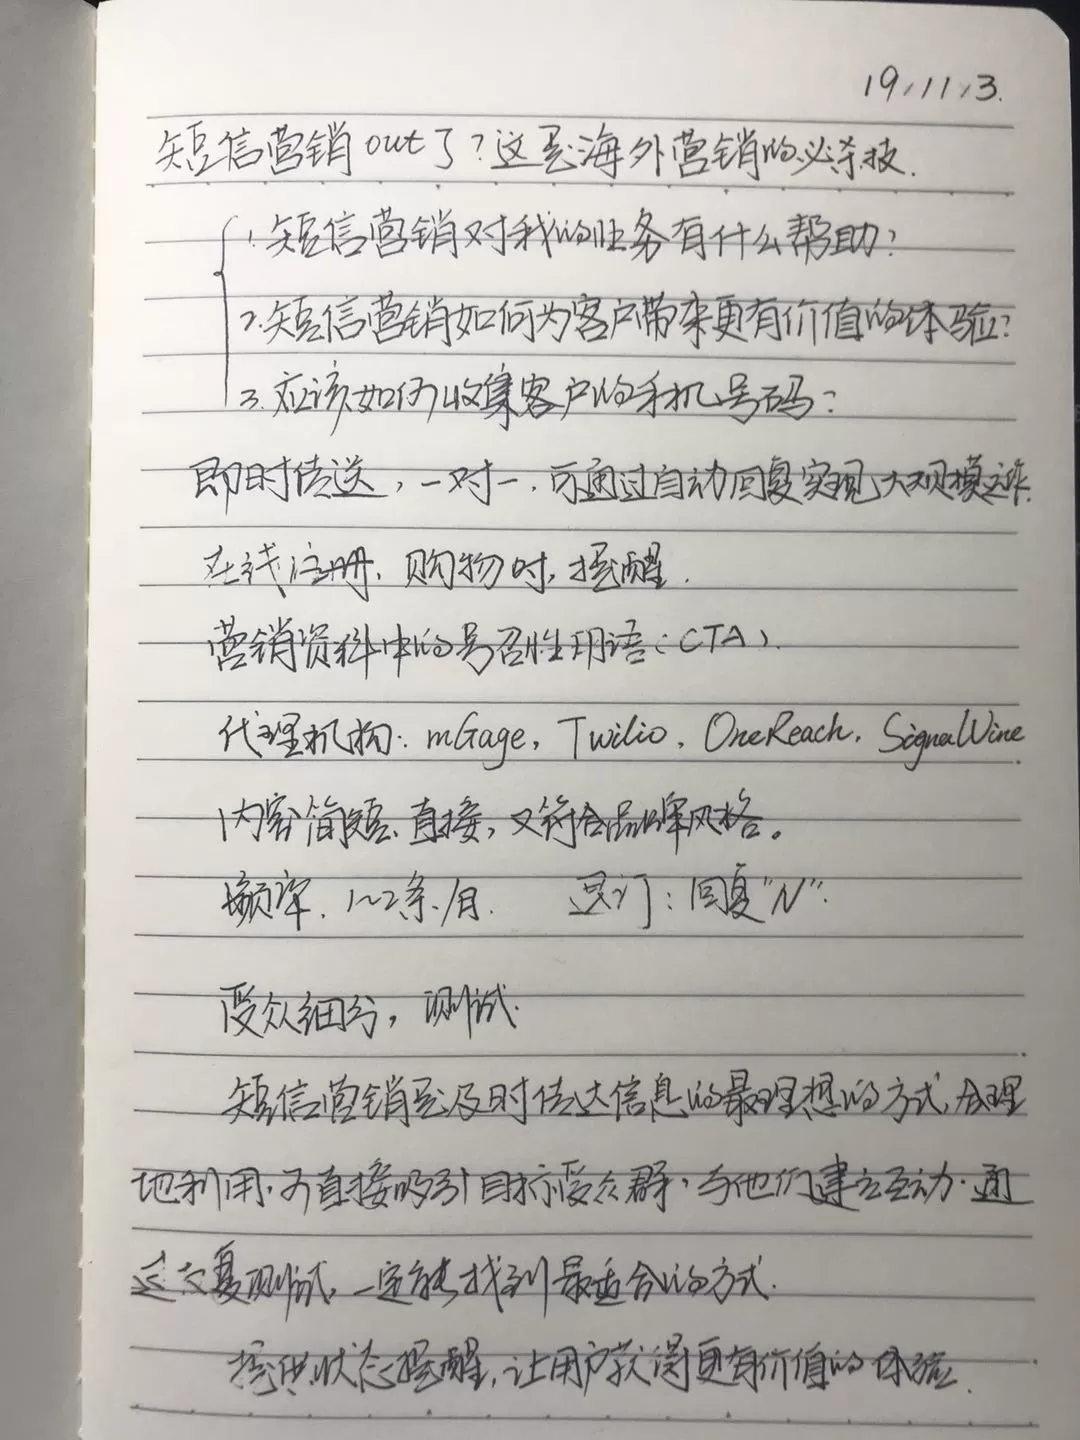 19/11/3.
短信营销out了?这是海外营销的必杀技.
1.短信营销对我的业务有什么帮助?
2.短信营销如何为客户带来更有价值的体验?
3.应该如何收集客户的手机号码?
即时传送,一对一.可通过自动回复实现大规模运作.
在线注册.购物时,提醒.
营销资料中的号召性用语(CTA).
代理机构:mGage,Twilio,OneReach,SignalWine
内容简短、直接,又符合品牌风格。
频率.1~2条/月. 退订:回复"N".
受众细分,测试.
短信营销是及时传达信息的最理想的方式,合理
地利用.可直接吸引目标受众群,与他们建立互动.通
过反复测试,一定能找到最适合的方式.
提供状态提醒,让用户获得更有价值的体验.